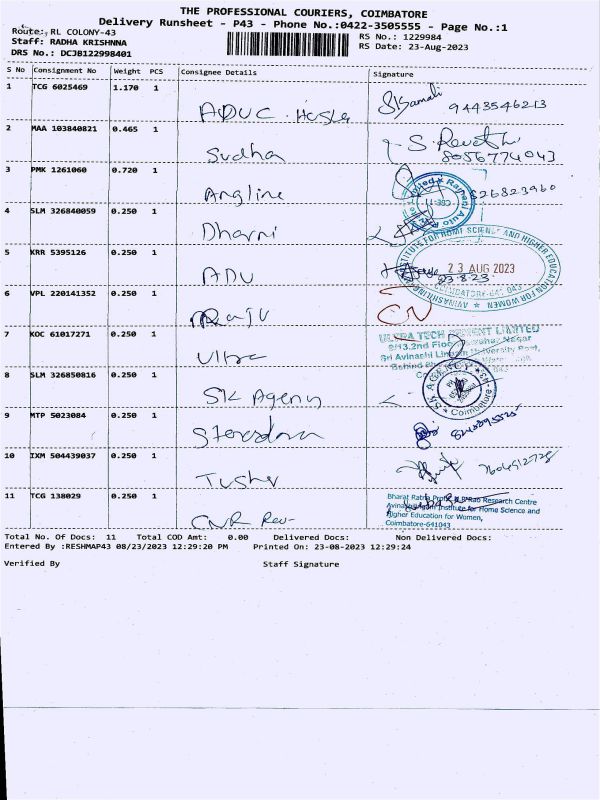 THE PROFESSIONAL COURIERS, COIMBATORE
Delivery Runsheet - P43 - Phone No.:0422-3505555 - Page No.:1
Route: RL COLONY-43
Staff: RADHA KRISHNNA
DRS No.: DCJB122998401
RS No.: 1229984
RS Date: 23-Aug-2023
S No Consignment No Weight PCS Consignee Details Signature
1 TCG 6025469 1.170 1 ADUC 9443546213
2 MAA 103840821 0.465 1 Sudha S. 8056774043
3 PMK 1261060 0.720 1 Angline
4 SLM 326840059 0.250 1 Dharni
5 KRR 5395126 0.250 1 ADU 23 AUG 2023
6 VPL 220141352 0.250 1 Raju
7 KOC 61017271 0.250 1 Ultra ULTRA TECH CEMENT LIMITED
8 SLM 326850816 0.250 1 SK Agency SK AGENCY Coimbatore
9 MTP 5023084 0.250 1
10 IXM 504439037 0.250 1
11 TCG 138029 0.250 1 CNR Rao-
Bharat Ratna Prof. Rao Research Centre
Institute for Home Science and
Higher Education for Women,
Coimbatore-641043
Total No. Of Docs: 11 Total COD Amt: 0.00 Delivered Docs: Non Delivered Docs:
Entered By :RESHMAP43 08/23/2023 12:29:20 PM Printed On: 23-08-2023 12:29:24
Verified By Staff Signature